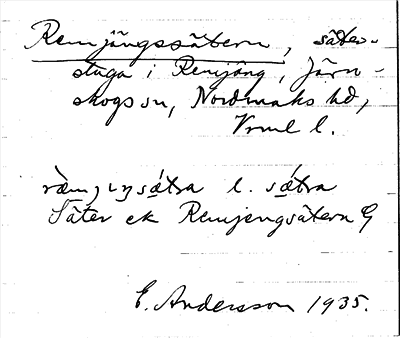 Remjängssätern, säter-
stuga i Remjäng, Järn-
skogs sn, Nordmarks hd,
Vrml l.
sǽtra l. sǽtra
Säter ek Remjengsätern
E. Andersson 1935.